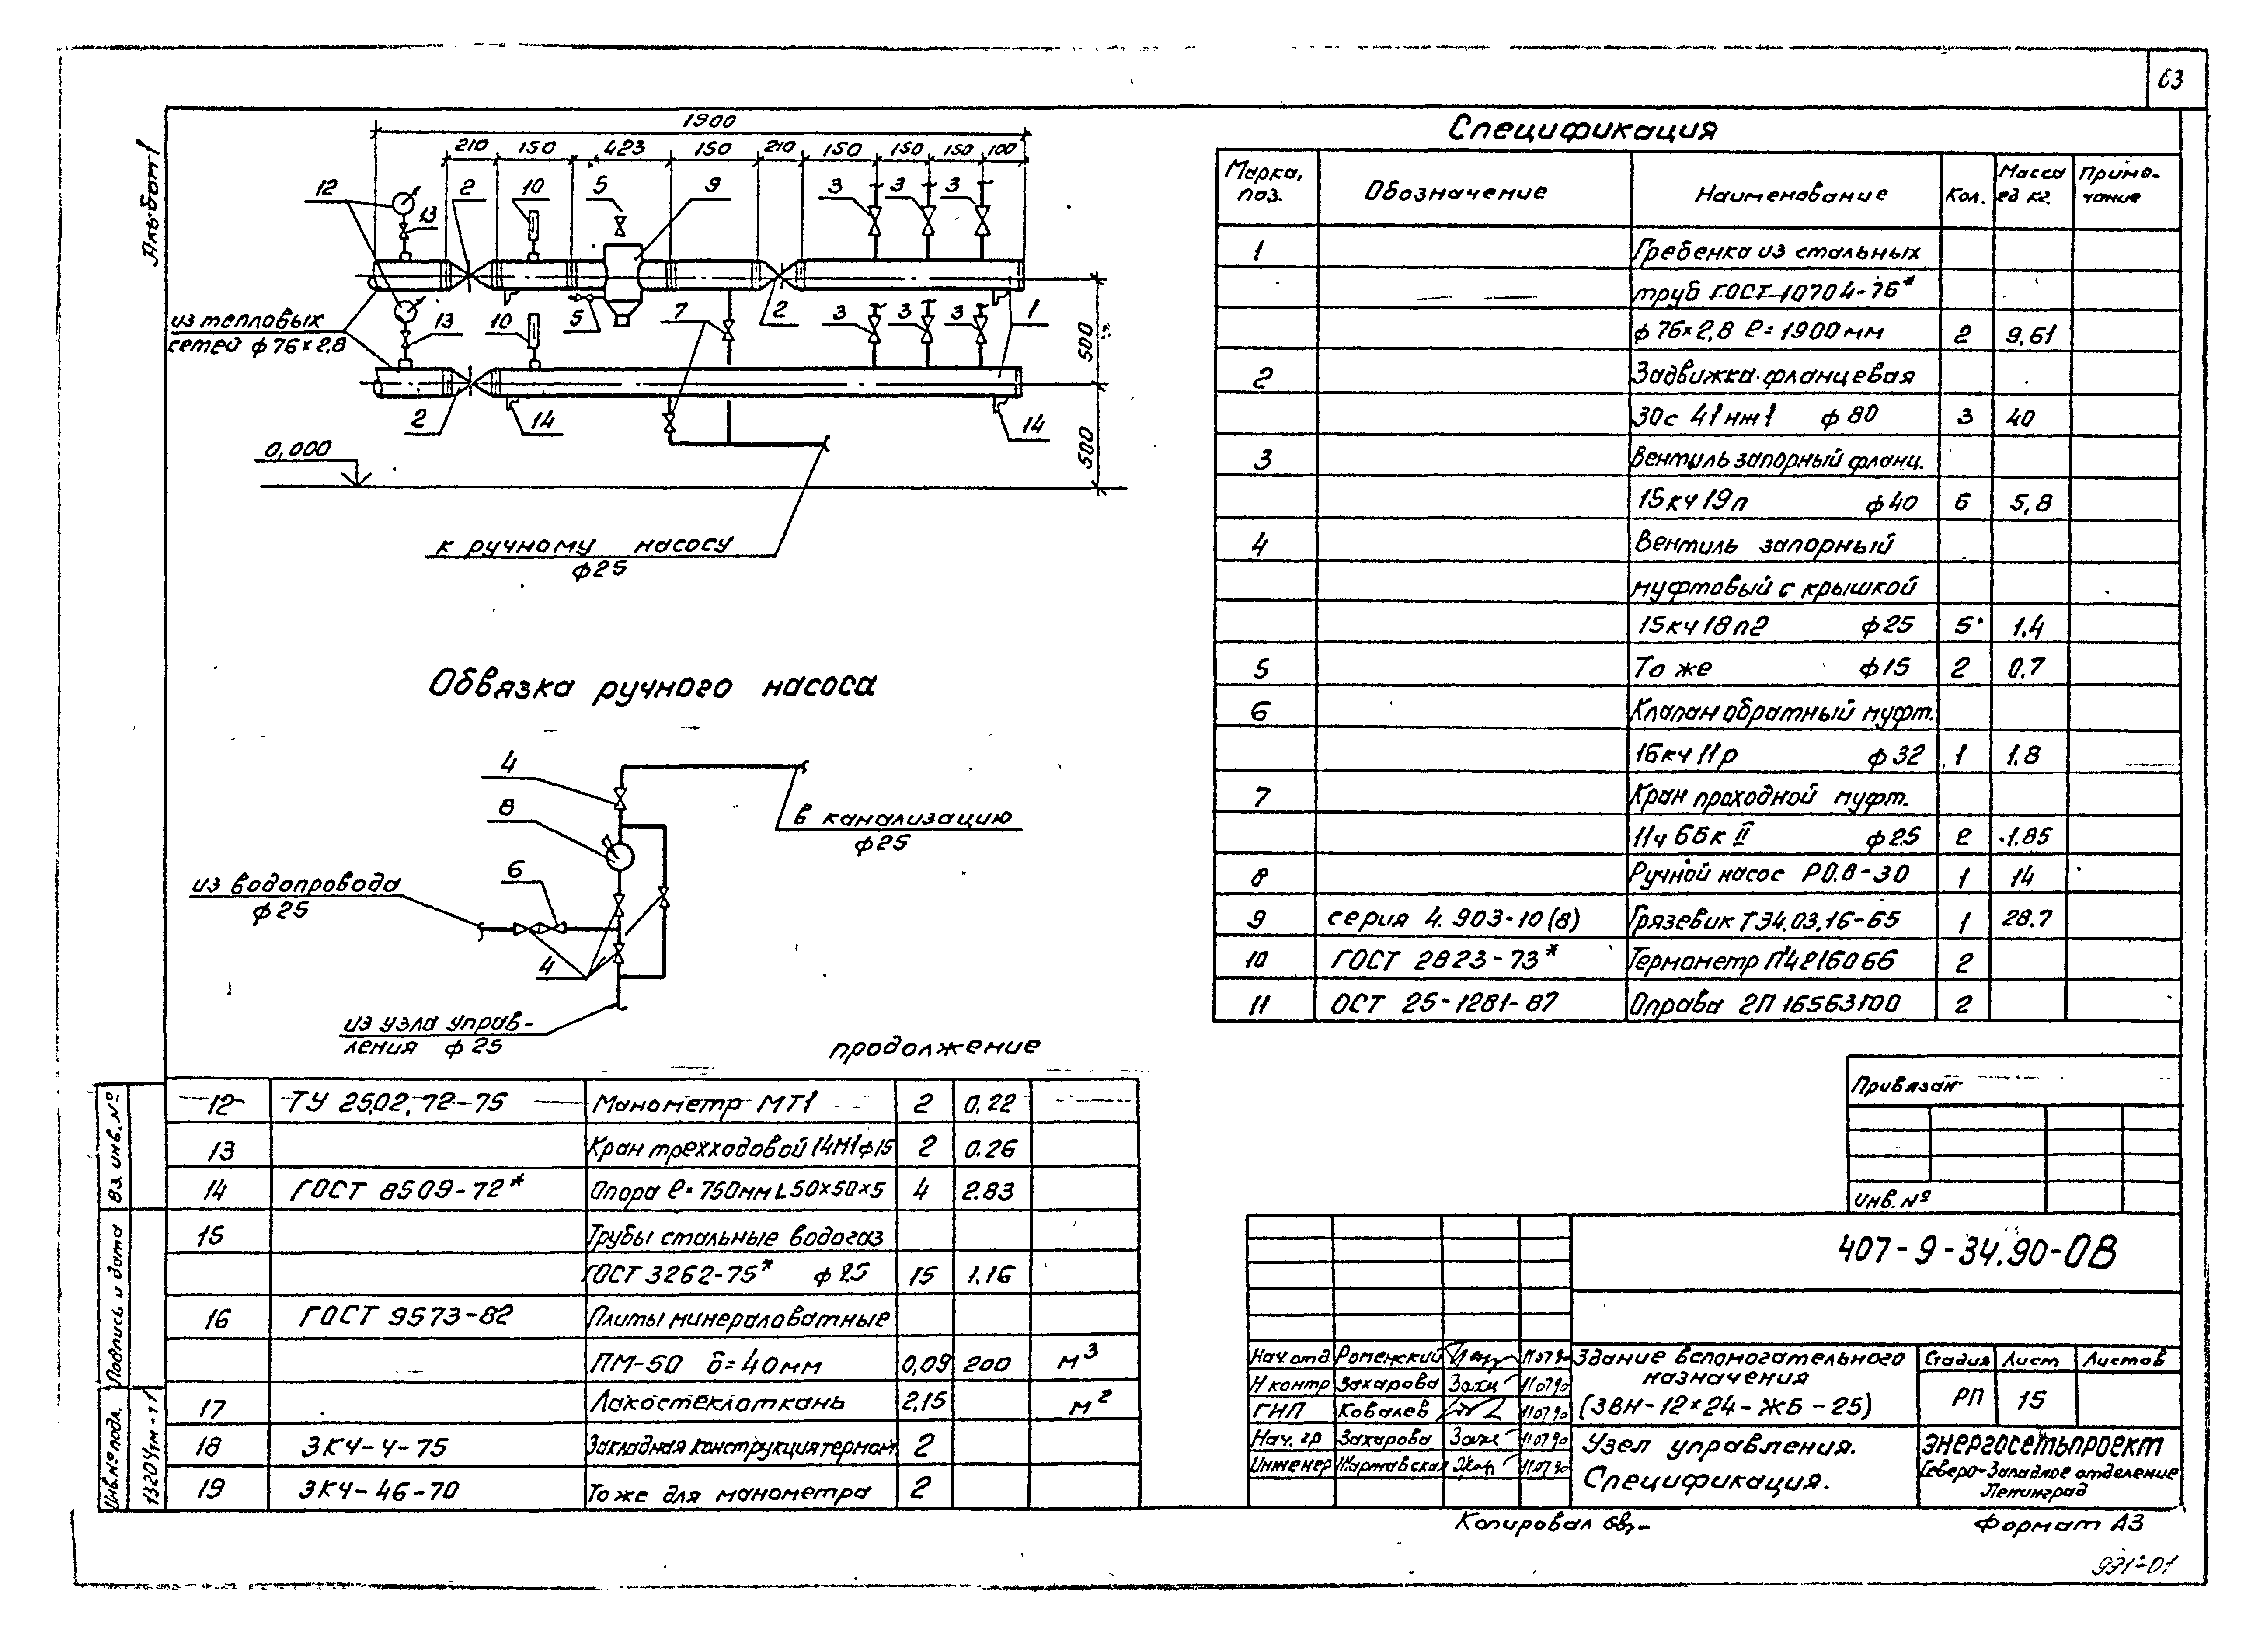 63
Альбом 1
1900
210 150 423 150 210 150 150 150 100
12 2 10 5 9 3 3 3
13
из тепловых
сетей ф76×2,8
13 10 5 7 2 3 3 3 1
500
2 14 14
0,000
500
к ручному насосу
ф25
Обвязка ручного насоса
4
8
в канализацию
ф25
из водопровода
ф25
6
4
из узла управ-
ления ф25
Спецификация
Марка, поз. Обозначение Наименование Кол. Масса ед кг. Примечание
1 Гребенка из стальных
труб ГОСТ 10704-76*
ф76×2,8 ℓ=1900мм 2 9,61
2 Задвижка фланцевая
30с 41нж1 ф80 3 40
3 Вентиль запорный фланц.
15кч19п ф40 6 5,8
4 Вентиль запорный
муфтовый с крышкой
15кч18п2 ф25 5 1.4
5 То же ф15 2 0.7
6 Клапан обратный муфт.
16кч11р ф32 1 1.8
7 Кран проходной муфт.
11ч6бк II ф25 2 1.85
8 Ручной насос Р0.8-30 1 14
9 серия 4.903-10(8) Грязевик Т34.03.16-65 1 28.7
10 ГОСТ 2823-73* Термометр П4216066 2
11 ОСТ 25-1281-87 Оправа 2П16563100 2
продолжение
12 ТУ 25.02.72-75 Манометр МТ1 2 0,22
13 Кран трехходовой 14М1ф15 2 0.26
14 ГОСТ 8509-72* Опора ℓ=750мм L50×50×5 4 2.83
15 Трубы стальные водогаз
ГОСТ 3262-75* ф25 15 1.16
16 ГОСТ 9573-82 Плиты минераловатные
ПМ-50 δ=40мм 0,09 200 м³
17 Лакостеклоткань 2,15 м²
18 ЗК4-4-75 Закладная конструкция термом. 2
19 ЗК4-46-70 То же для манометра 2
Вз. инв. №
Подпись и дата
Инв.№подл.
13204тм-т1
Привязан
Инв. №
407-9-34.90-ОВ
Нач.отд Роменский 11.07.90
Н контр Захарова 11.07.90
ГИП Ковалев 11.07.90
Нач. гр Захарова 11.07.90
Инженер 11.07.90
Здание вспомогательного
назначения
(ЗВН-12×24-ЖБ-25)
Стадия Лист Листов
РП 15
Узел управления.
Спецификация.
ЭНЕРГОСЕТЬПРОЕКТ
Северо-Западное отделение
Ленинград
Копировал
Формат А3
991-01